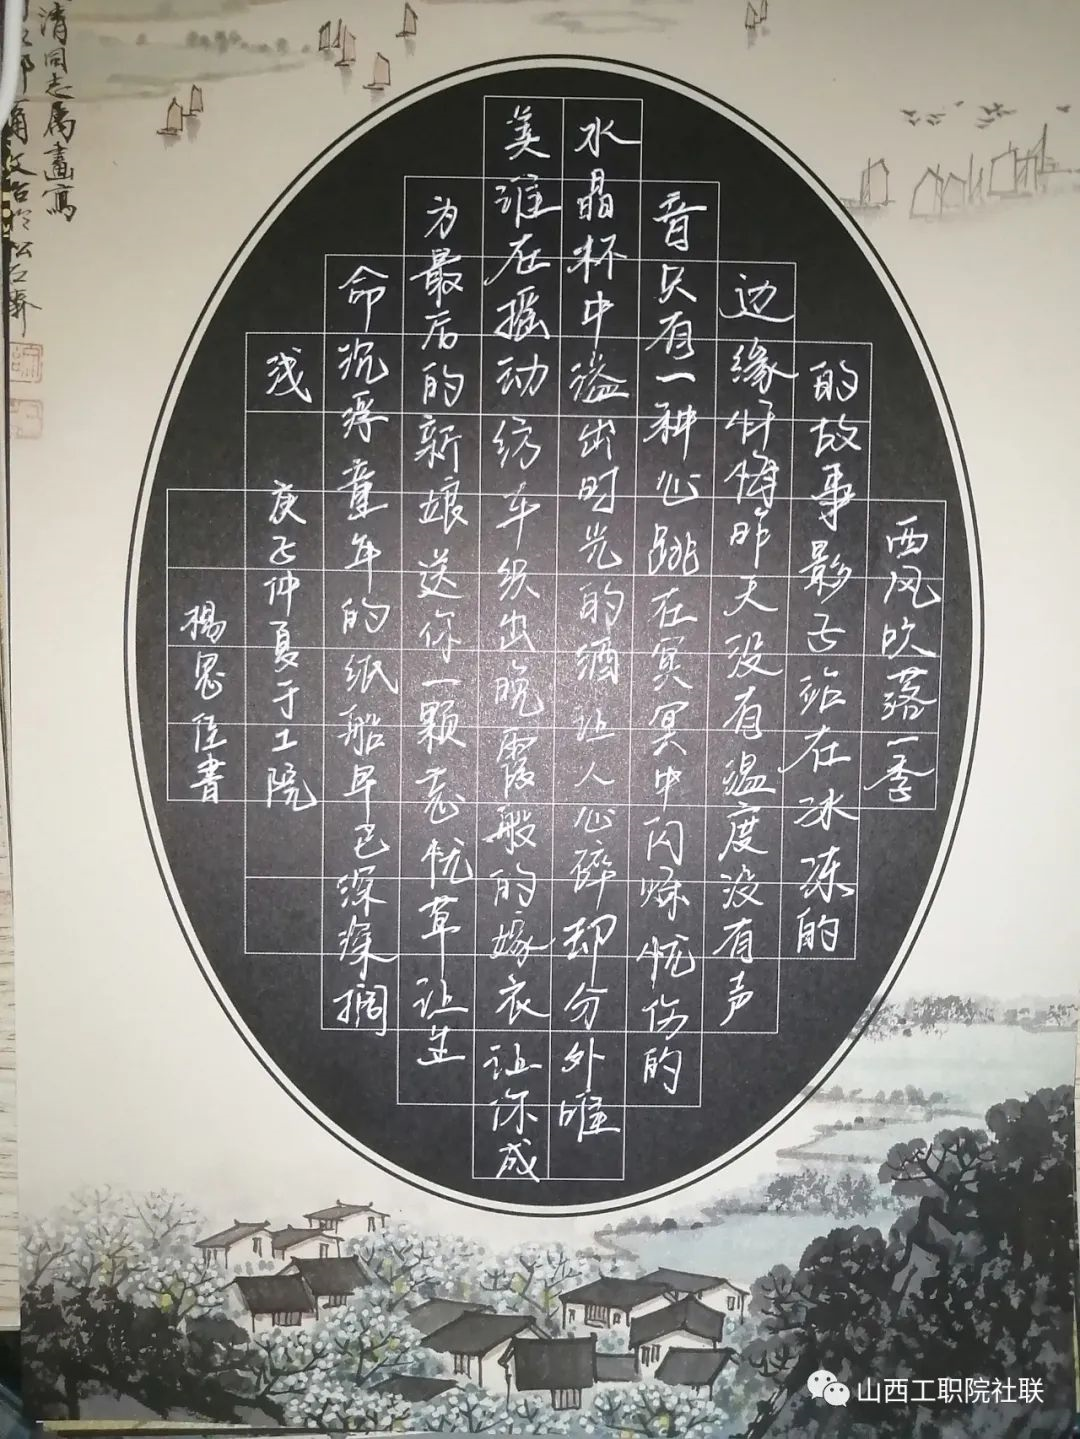 西风吹落一季
的故事影子站在冰冻的
边缘忏悔昨天没有温度没有声
音只有一种心跳在冥冥中闪烁忧伤的
水晶杯中溢出时光的酒让人心碎却分外唯
美谁在摇动纺车织出晚霞般的嫁衣让你成
为最后的新娘送你一颗忘忧草让生
命沉浮童年的纸船早已深深搁
浅
庚子仲夏于工院
杨思臣书
清同志属画写
山西工职院社联